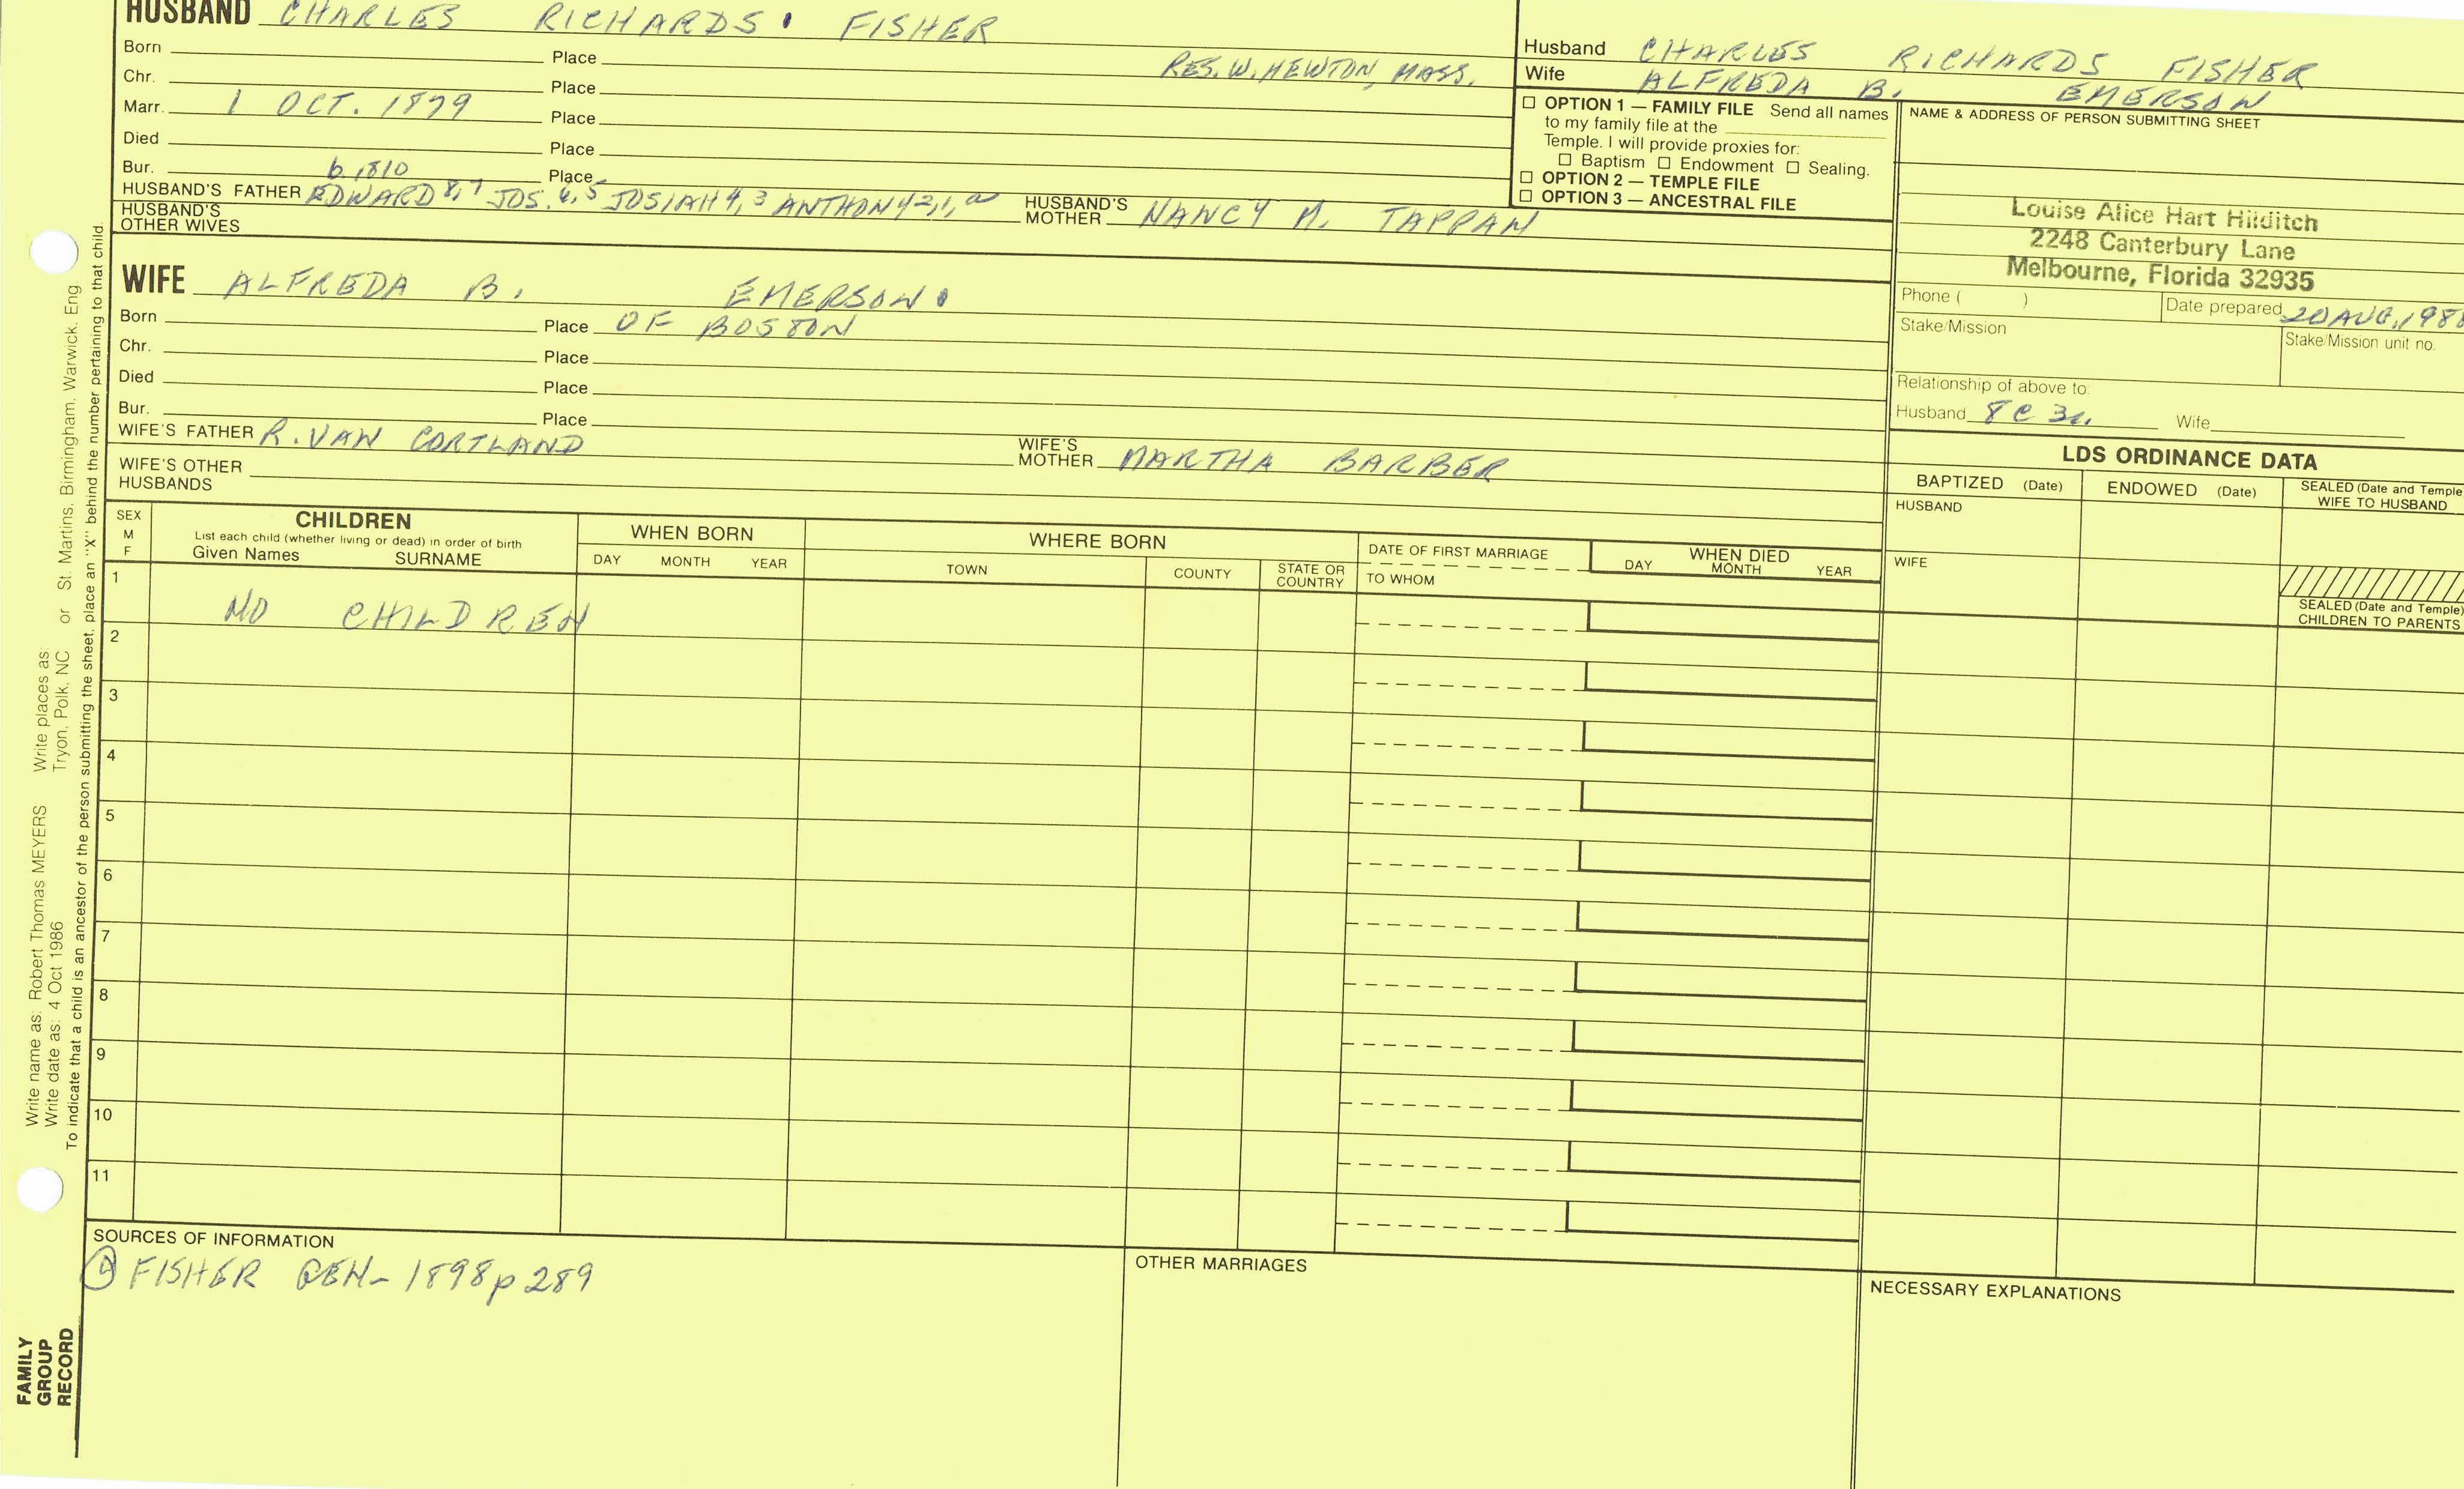 HUSBAND CHARLES RICHARDS FISHER
Born Place RES. W. NEWTON, MASS.
Chr. Place
Marr. 1 OCT. 1879 Place
Died Place
Bur. Place
b. 1810
HUSBAND'S FATHER EDWARD 8,7 JOS. 6,5 JOSIAH 4,3 ANTHONY 2,1,a HUSBAND'S MOTHER NANCY M. TAPPAN
HUSBAND'S OTHER WIVES
WIFE ALFREDA B. EMERSON
Born Place OF BOSTON
Chr. Place
Died Place
Bur. Place
WIFE'S FATHER R. VAN CORTLAND WIFE'S MOTHER MARTHA BARBER
WIFE'S OTHER HUSBANDS
Husband CHARLES RICHARDS FISHER
Wife ALFREDA B. EMERSON
☐ OPTION 1 — FAMILY FILE Send all names
to my family file at the
Temple. I will provide proxies for:
☐ Baptism ☐ Endowment ☐ Sealing.
☐ OPTION 2 — TEMPLE FILE
☐ OPTION 3 — ANCESTRAL FILE
NAME & ADDRESS OF PERSON SUBMITTING SHEET
Louise Alice Hart Hilditch
2248 Canterbury Lane
Melbourne, Florida 32935
Phone ( ) Date prepared 20 AUG, 198
Stake/Mission Stake/Mission unit no.
Relationship of above to:
Husband 8 C 3 Wife
LDS ORDINANCE DATA
BAPTIZED (Date) ENDOWED (Date) SEALED (Date and Temple)
WIFE TO HUSBAND
HUSBAND
WIFE
SEALED (Date and Temple)
CHILDREN TO PARENTS
SEX
M
F
CHILDREN
List each child (whether living or dead) in order of birth
Given Names SURNAME
WHEN BORN
DAY MONTH YEAR
WHERE BORN
TOWN COUNTY STATE OR COUNTRY
DATE OF FIRST MARRIAGE
TO WHOM
WHEN DIED
DAY MONTH YEAR
1 NO CHILDREN
2
3
4
5
6
7
8
9
10
11
SOURCES OF INFORMATION
FISHER GEN- 1898 p 289
OTHER MARRIAGES
NECESSARY EXPLANATIONS
Write name as: Robert Thomas MEYERS Write places as
Write date as: 4 Oct 1986 Tryon, Polk, NC or St. Martins, Birmingham, Warwick, Eng
To indicate that a child is an ancestor of the person submitting the sheet, place an "X" behind the number pertaining to that child.
FAMILY
GROUP
RECORD